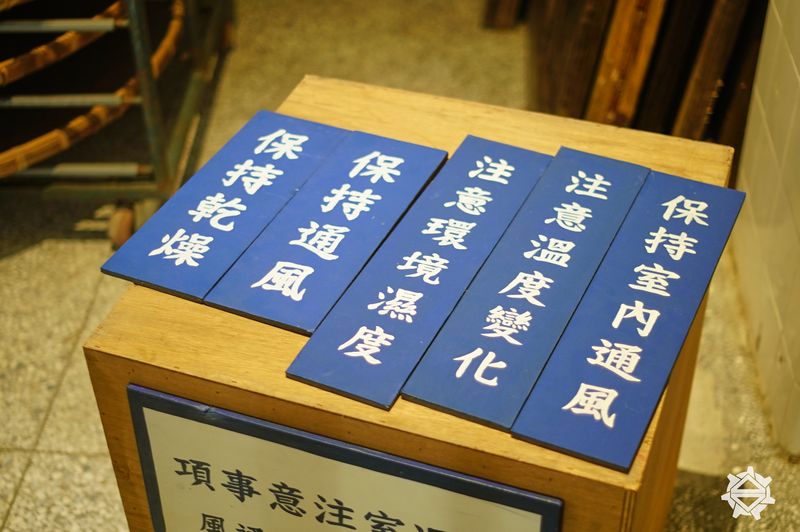 保持乾燥
保持通風
注意環境濕度
注意溫度變化
保持室內通風
項事意注室
風通